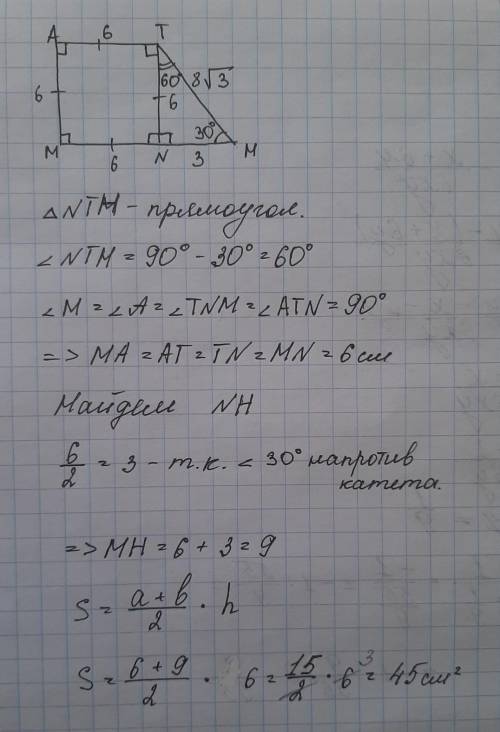 A 6 T
60° 8√3
6 6
30°
M 6 N 3 H
△NTH - прямоугол.
∠NTH = 90° - 30° = 60°
∠M = ∠A = ∠TNM = ∠ATN = 90°
=> MA = AT = TN = MN = 6 см
Найдем NH
6/2 = 3 - т.к. ∠ 30° напротив
катета.
=> MH = 6 + 3 = 9
S = a + b / 2 · h
S = 6 + 9 / 2 · 6 = 15/2 · 6 3 = 45 см²